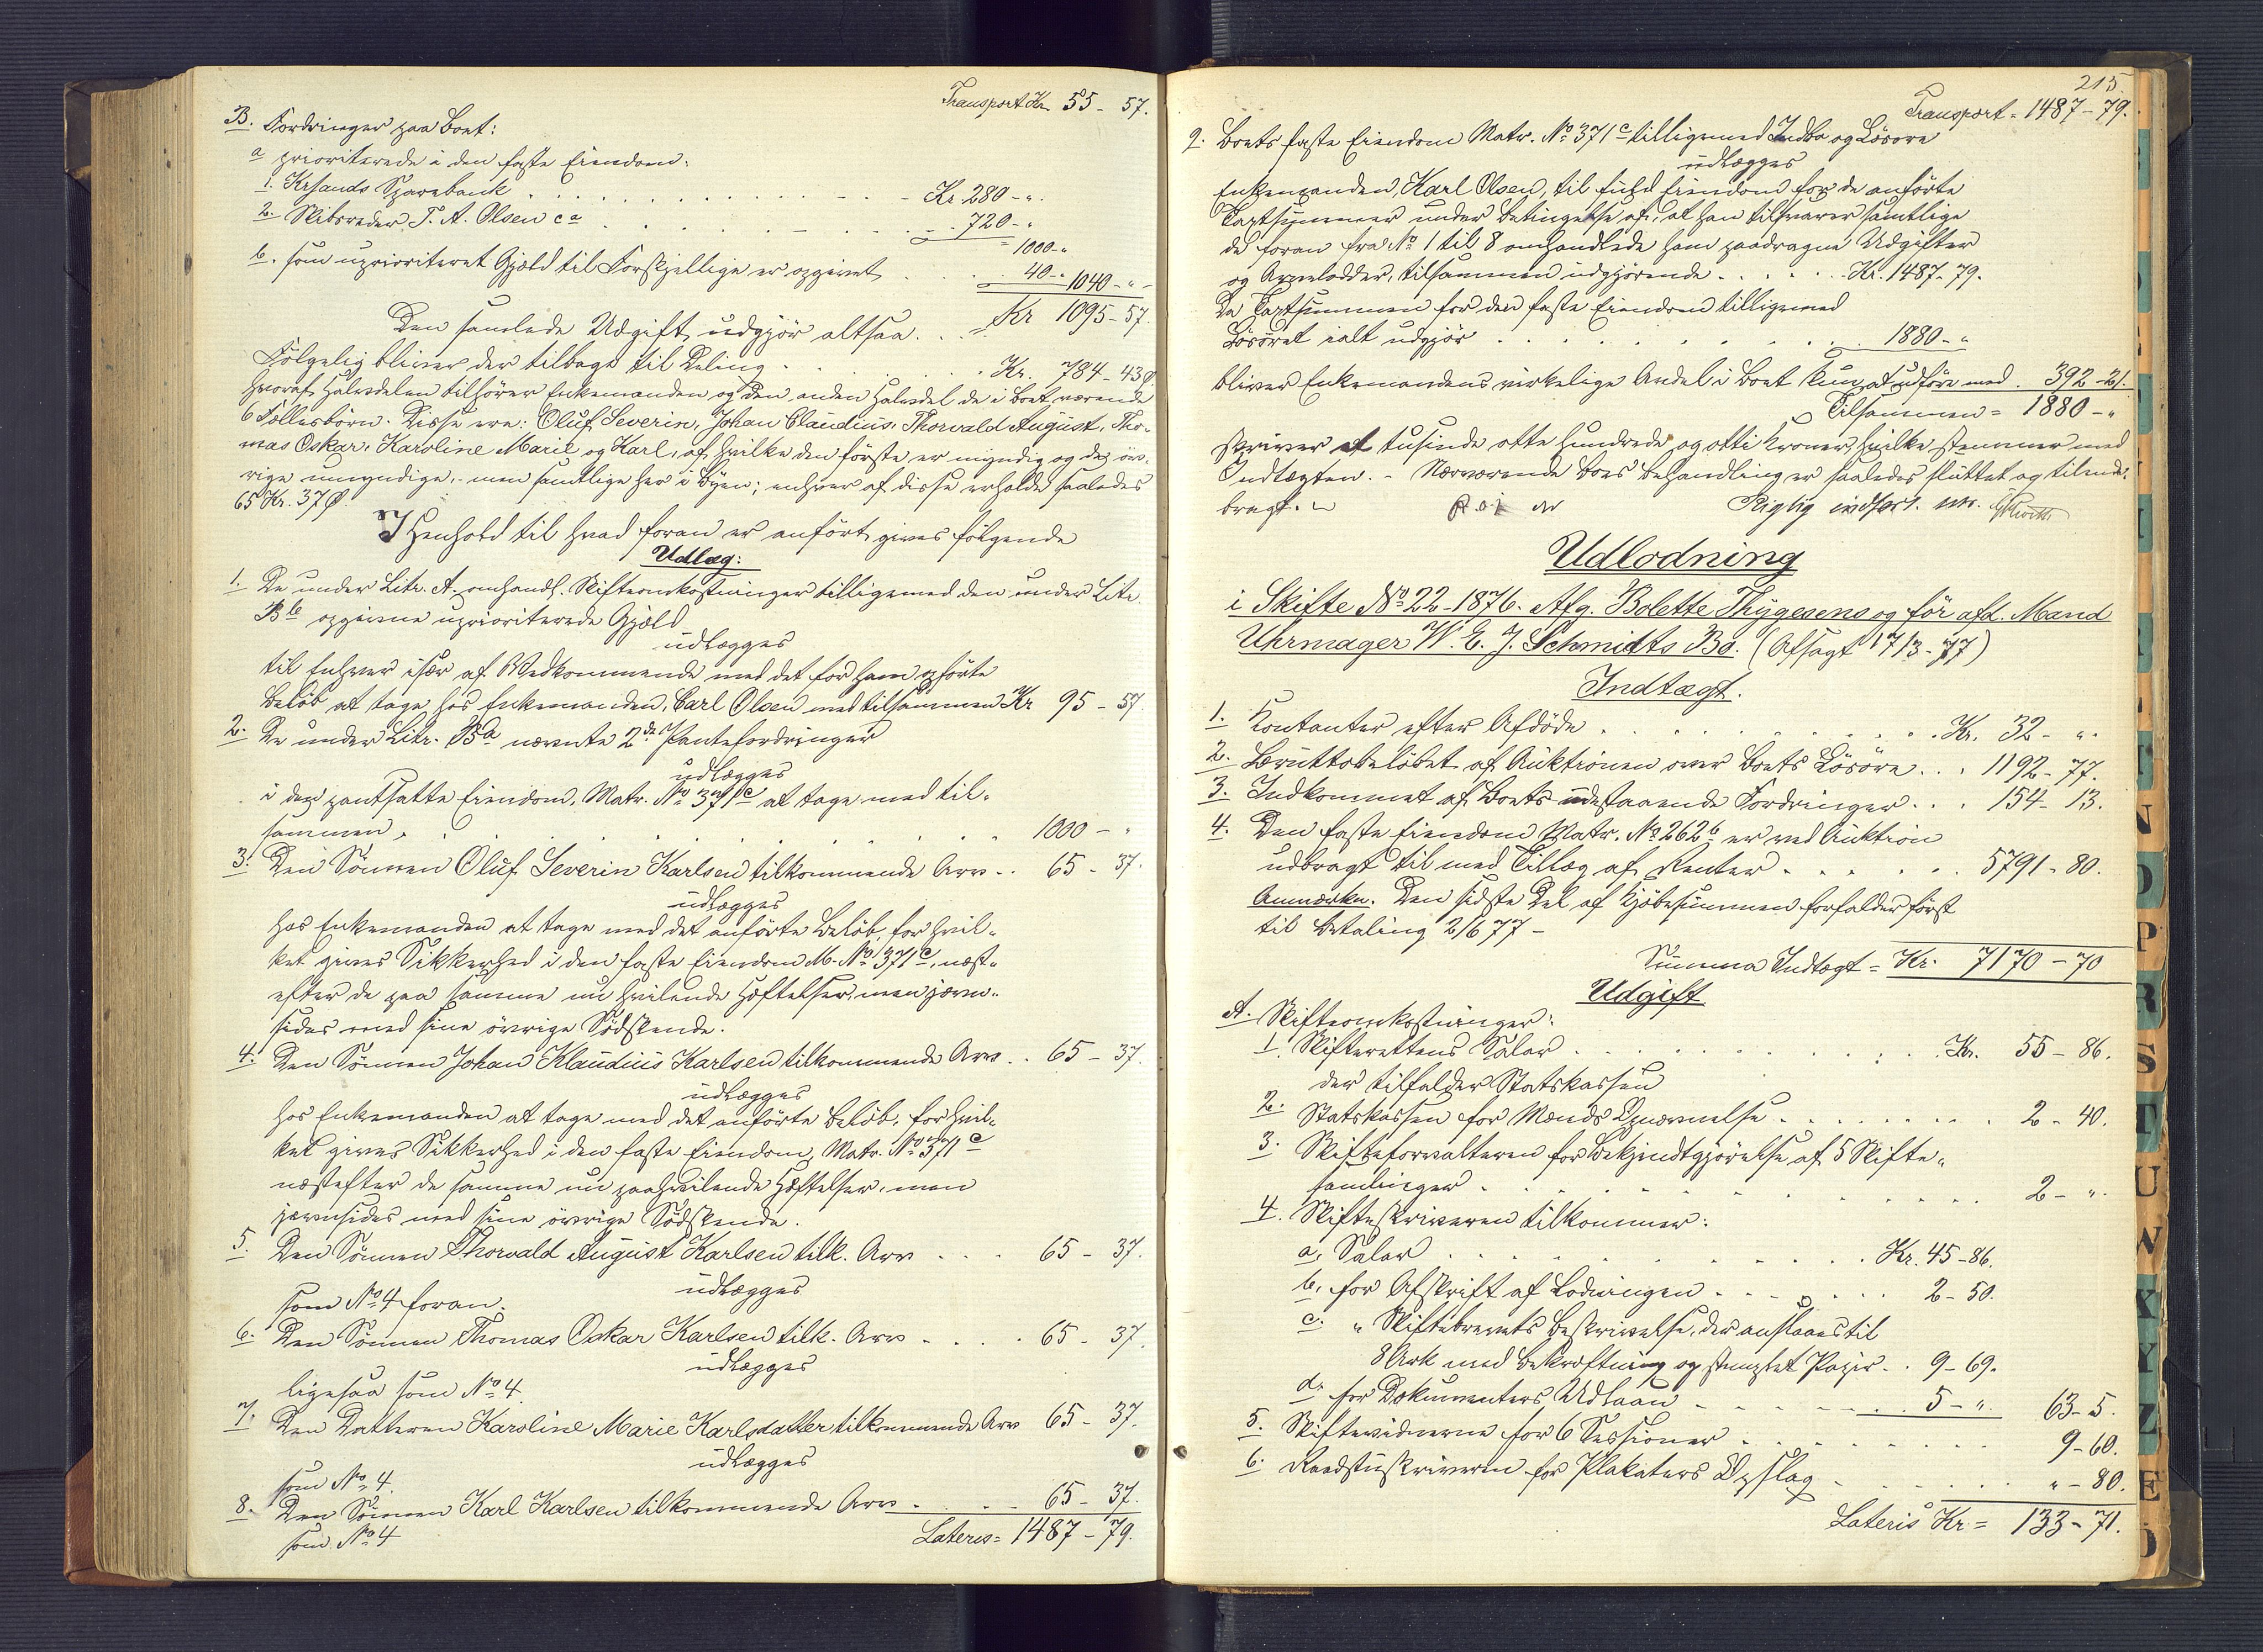 Transport Kr. 55 - 57.
B. Fordringer paa Boet:
a prioriterede i den faste Eiendom:
1. Krsands Sparebank . . . Kr. 280 - ".
2. Skibsreder T. A. Olsen ca . . . 720 - "
1000 - "
b. som uprioriteret Gjæld til Forskjellige er opgivet . . . 40 - " 1040 - " -
Den samlede Udgift udgjør altsaa . . . Kr 1095 - 57.
Følgelig bliver der tilbage til Deling . . . Kr. 784 - 43 Ø.
hvoraf Halvdelen tilhører Enkemanden og den anden Halvdel de i Boet værende
6 Fællesbørn. Disse ere: Oluf Severin, Johan Claudius, Thorvald August, Tho-
mas Oskar, Karoline Marie og Karl, af hvilke den første er myndig og de øv-
rige umyndige, men samtlige her i Byen; enhver af disse erholde saaledes
65 Kr. 37 Ø.
I Henhold til hvad foran er anført gives følgende
Udlæg:
1. De under Litr. A. omhandl. Skifteomkostninger tilligemed den under Litr.
B b opgivne uprioriterede Gjæld
udlægges
til Enhver især af Vedkommende med det for ham opførte
Beløb at tage hos Enkemanden, Carl Olsen med tilsammen Kr 95 - 57
2. De under Litr. B a nævnte 2de Pantefordringer
udlægges
i den pantsatte Eiendom, Matr. No 371 c at tage med til-
sammen . . . 1000 - "
3. Den Sønnen Oluf Severin Karlsen tilkommende Arv . . 65 - 37.
udlægges
hos Enkemanden at tage med det anførte Beløb, for hvil-
ket gives Sikkerhed i den faste Eiendom M. No 371 c, næst-
efter de paa samme nu hvilende Hæftelser, men jævn-
sides med sine øvrige Sødskende.
4. Den Sønnen Johan Klaudius Karlsen tilkommende Arv . . 65 - 37.
udlægges
hos Enkemanden at tage med det anførte Beløb, for hvil-
ket gives Sikkerhed i den faste Eiendom, Matr. No 371 c
næstefter de samme nu paahvilende Hæftelser, men
jævnsides med sine øvrige Sødskende.
5. Den Sønnen Thorvald August Karlsen tilk. Arv . . . 65 - 37.
udlægges
som No 4 foran.
6. Den Sønnen Thomas Oskar Karlsen tilk. Arv . . . 65 - 37.
udlægges
ligesaa som No 4.
7. Den Datteren Karoline Marie Karlsdatter tilkommende Arv 65 - 37.
udlægges
som No 4.
8. Den Sønnen Karl Karlsen tilkommende Arv . . . 65 - 37.
som No 4
Lateris = 1487 - 79.
215.
Transport = 1487 - 79.
9. Boets faste Eiendom Matr. No 371 c tilligemed Indbo og Løsøre
udlægges
Enkemanden, Karl Olsen, til fuld Eiendom for de anførte
Taxtsummer under Betingelse af, at han tilsvarer samtlige
de foran fra No 1 til 8 omhandlede ham paadragne Udgifter
og Arvelodder, tilsammen udgjørende . . . Kr. 1487 - 79.
Da Taxtsummen for den faste Eiendom tilligemed
Løsøret ialt udgjør . . . 1880 - "
bliver Enkemandens virkelige Andel i Boet kun at udføre med . 392 - 21.
Tilsammen = 1880 - "
skriver et tusinde otte hundrede og otti Kroner, hvilke stemmer med
Indtægten. - Nærværende Boes Behandling er saaledes sluttet og tilende-
bragt.
Rigtig indført.
Udlodning
i Skifte No 22 - 1876. Afg. Bolette Thygesens og før afd. Mand
Uhrmager W. E. J. Schmidts Bo. (Afsagt 17/3 - 77)
Indtægt.
1. Kontanter efter Afdøde . . . Kr. 32 - ".
2. Bruttobeløbet af Auktionen over Boets Løsøre . . . 1192 - 77.
3. Indkommet af Boets udestaaende Fordringer . . . 154 - 13.
4. Den faste Eiendom Matr. No 262 b er ved Auktion
udbragt til med Tillæg af Renter . . . 5791 - 80.
Anmærkn. Den sidste Del af Kjøbesummen forfalder først
til Betaling 2/6 77 -
Summa Indtægt = Kr. 7170 - 70
Udgift
A. Skifteomkostninger:
1. Skifterettens Salær . . . Kr. 55 - 86.
der tilfalder Statskassen
2. Statskassen for Mænds Opnævnelse . . . 2 - 40.
3. Skifteforvalteren for Bekjendtgjørelse af 5 Skifte-
samlinger . . . 2 - ".
4. Skifteskriveren tilkommer:
a, Salær . . . Kr. 45 - 86.
b, for Afskrift af Lodningen . . . 2 - 50.
c. " Skiftebrevets Beskrivelse, der anslaaes til
8 Ark med Bekræftning og stemplet Papir . . 9 - 69.
d. for Dokumenters Udlaan . . . 5 - ". 63 - 5.
5. Skiftevidnerne for 6 Sessioner . . . 9 - 60.
6. Raadstuskriveren for Plakaters Opslag . . . " - 80.
Lateris Kr = 133 - 71.